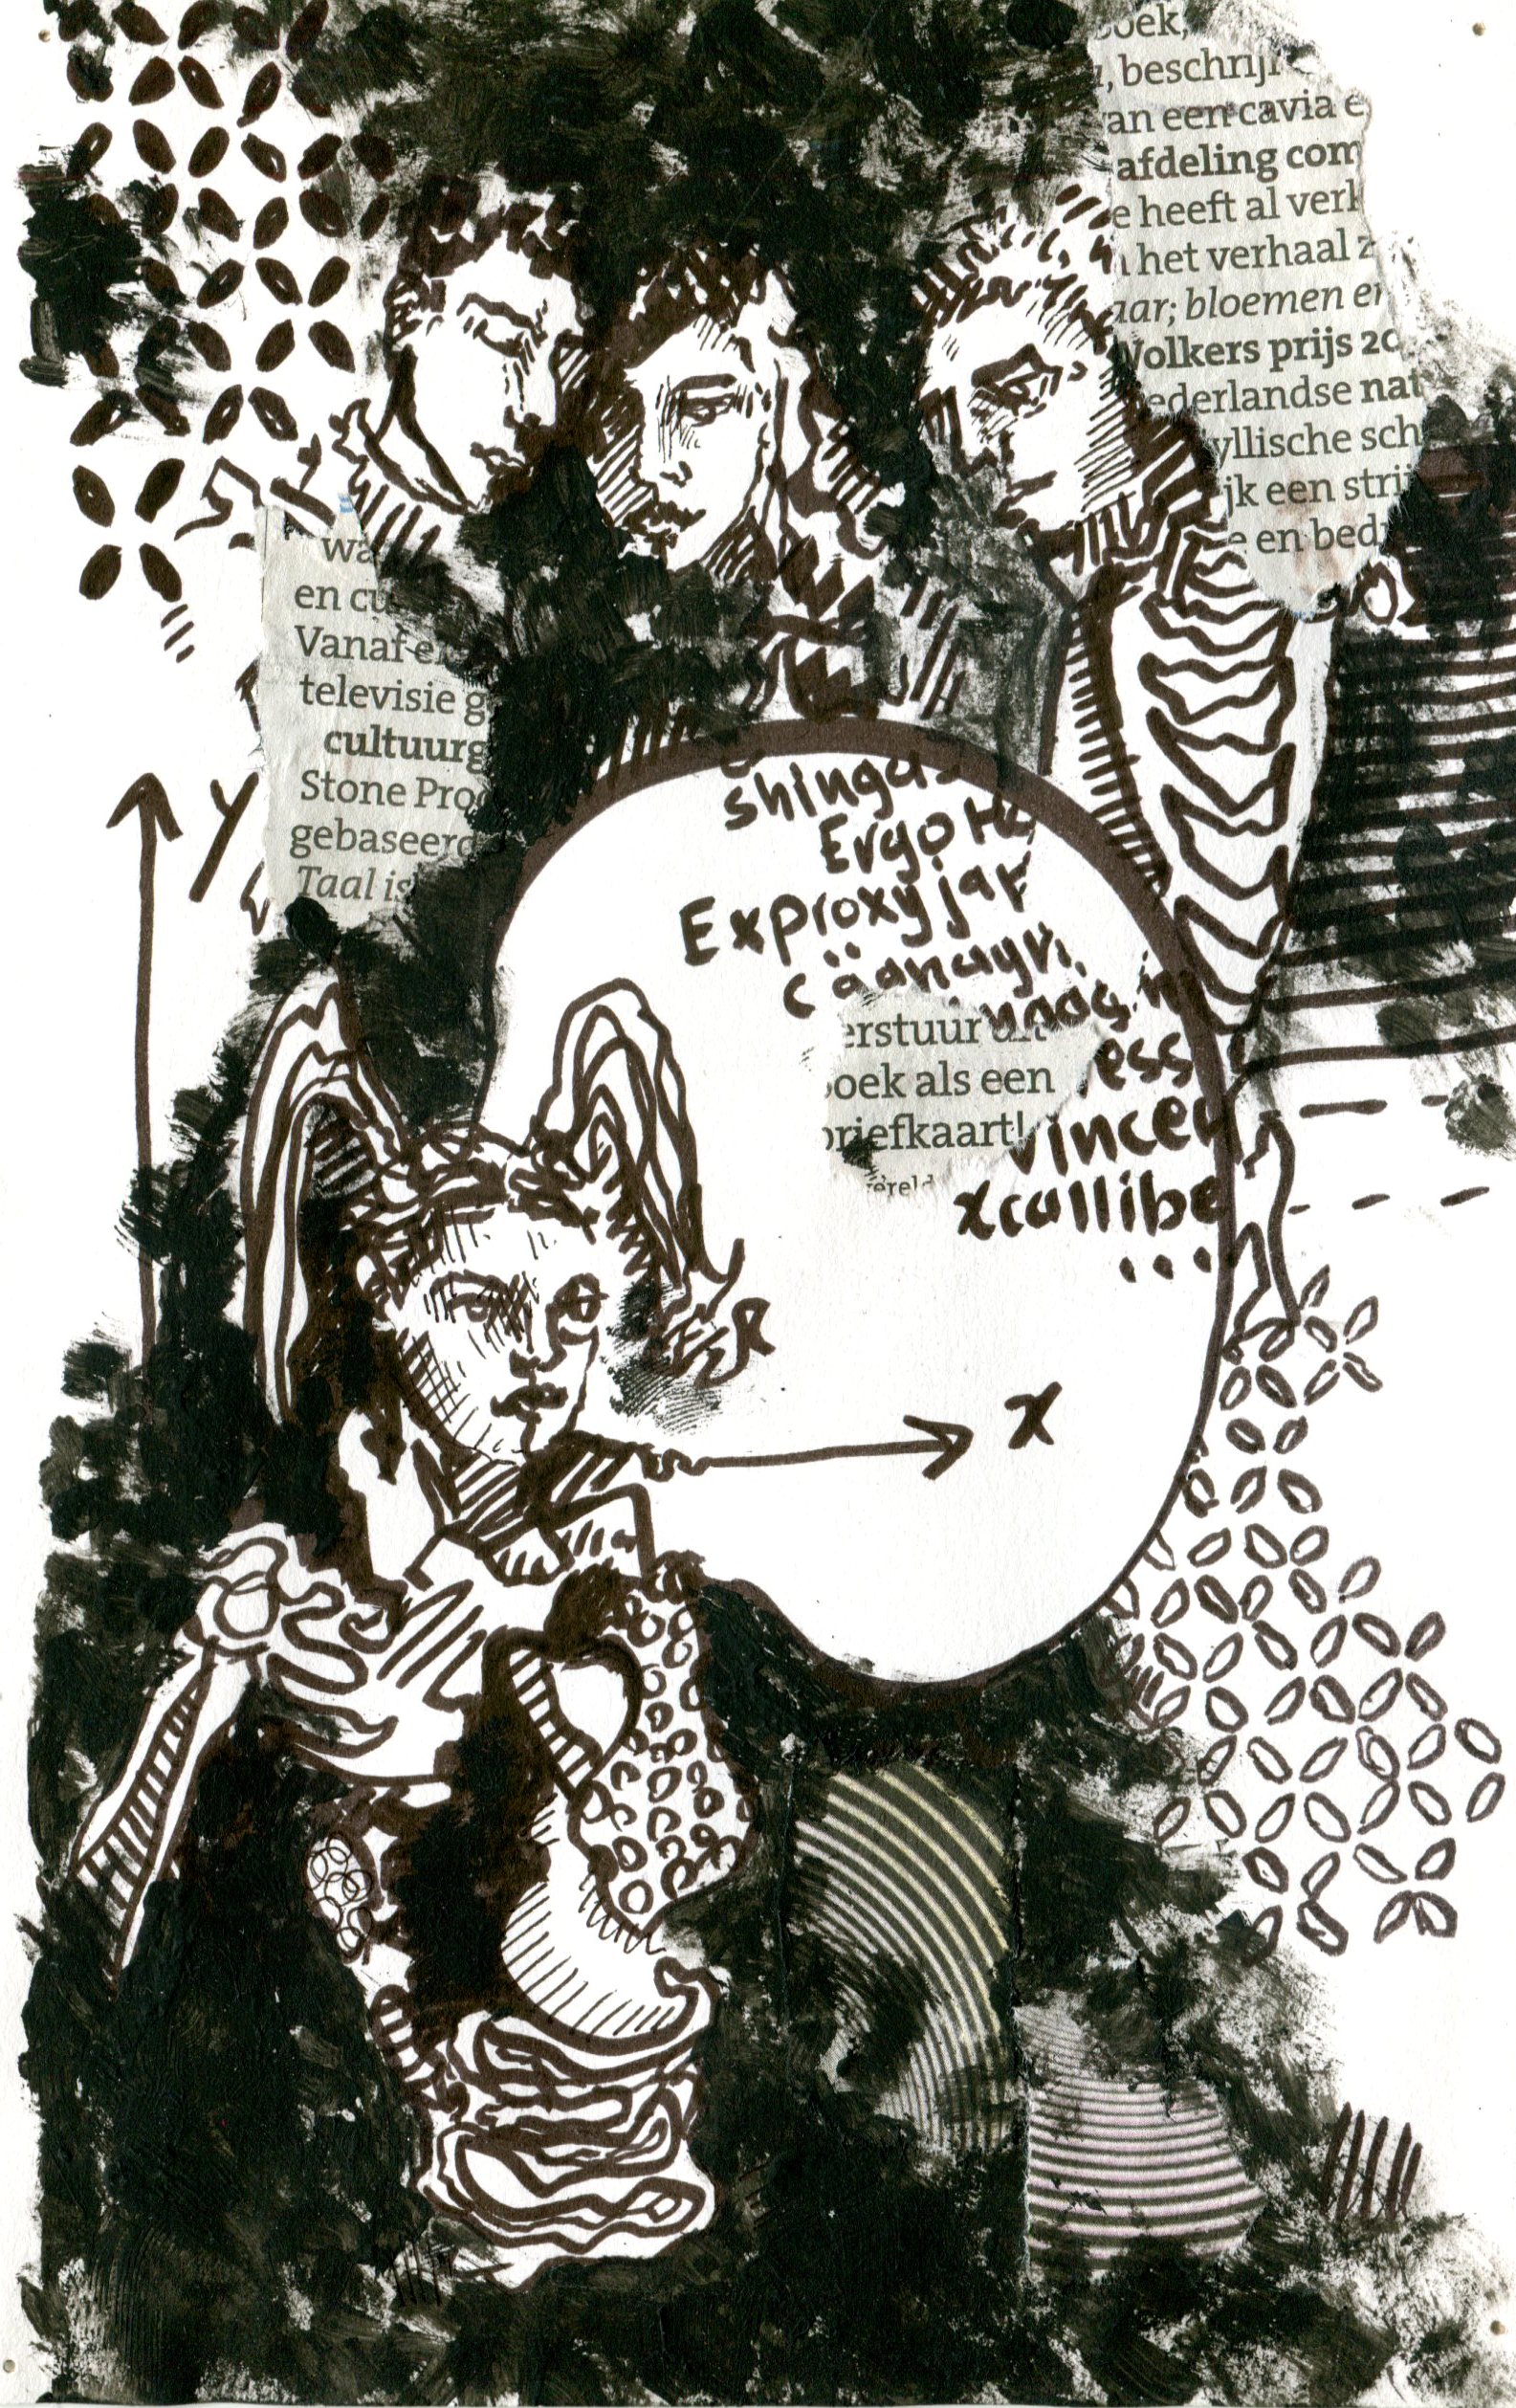 oek,
, beschrij
van een cavia e
afdeling com
e heeft al verk
het verhaal z
aar; bloemen en
Wolkers prijs 20
ederlandse nat
yllische sch
jk een strij
e en bed
wa
en cu
Vanaf e
televisie g
cultuurg
Stone Prod
gebaseerd
Taal is
Y
shingd
Ergo
Exproxyjar
erstuur
oek als een
briefkaart!
ereld
ess
vince
xcallibe
...
R
x